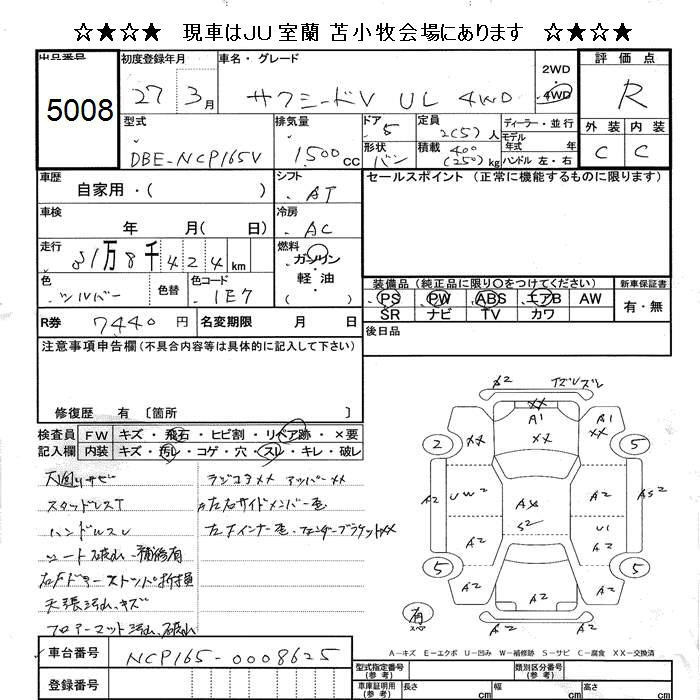 ☆★☆★ 現車はJU室蘭 苫小牧会場にあります ☆★☆★
出品番号
5008
初度登録年月
27年3月
車名・グレード
サクシードV UL 4WD
2WD
・
4WD
評価点
R
外装 内装
C C
型式
DBE-NCP165V
排気量
1500cc
ドア
5
形状
バン
定員
2(5)人
積載
400
(250)kg
ディーラー・並行
モデル
年式 年
ハンドル 左・右
車歴
自家用・( )
シフト
AT
セールスポイント (正常に機能するものに限ります)
車検
年 月( 日)
冷房
AC
走行
31万8千424km
燃料
ガソリン
・
軽油
色
シルバー
色替
色コード
1E7
装備品(純正品に限り○をつけてください)
PS PW ABS エアB AW
SR ナビ TV カワ
新車保証書
有・無
R券 7440円
名変期限 月 日
後日品
注意事項申告欄(不具合内容等は具体的に記入して下さい)
修復歴 有〔箇所 〕
検査員
記入欄
FW キズ・飛石・ヒビ割・リペア跡・×要
内装 キズ・汚レ・コゲ・穴・スレ・キレ・破レ
下回りサビ
スタッドレスT
ハンドルスレ
シート破れ、補修有
右Fドアーストッパ折損
天張汚れ、キズ
フロアーマット汚れ、破れ
ラジコアXX アッパーXX
左右サイドメンバー歪
左Fインナー歪、フェンダーブラケットXX
A2
A1
XX
XX
A1
XX
2
5
A2
UW2
A4
S2
A2
AS2
U1
A2
A2
A2
5
5
A2
A2
A2
有
スペア
A－キズ E－エクボ U－凹み W－補修跡 S－サビ C－腐食 XX－交換済
車台番号
NCP165-0008625
登録番号
型式指定番号
(参考)
類別区分番号
(参考)
車庫証明用
(参考)
長さ cm
幅 cm
高さ cm